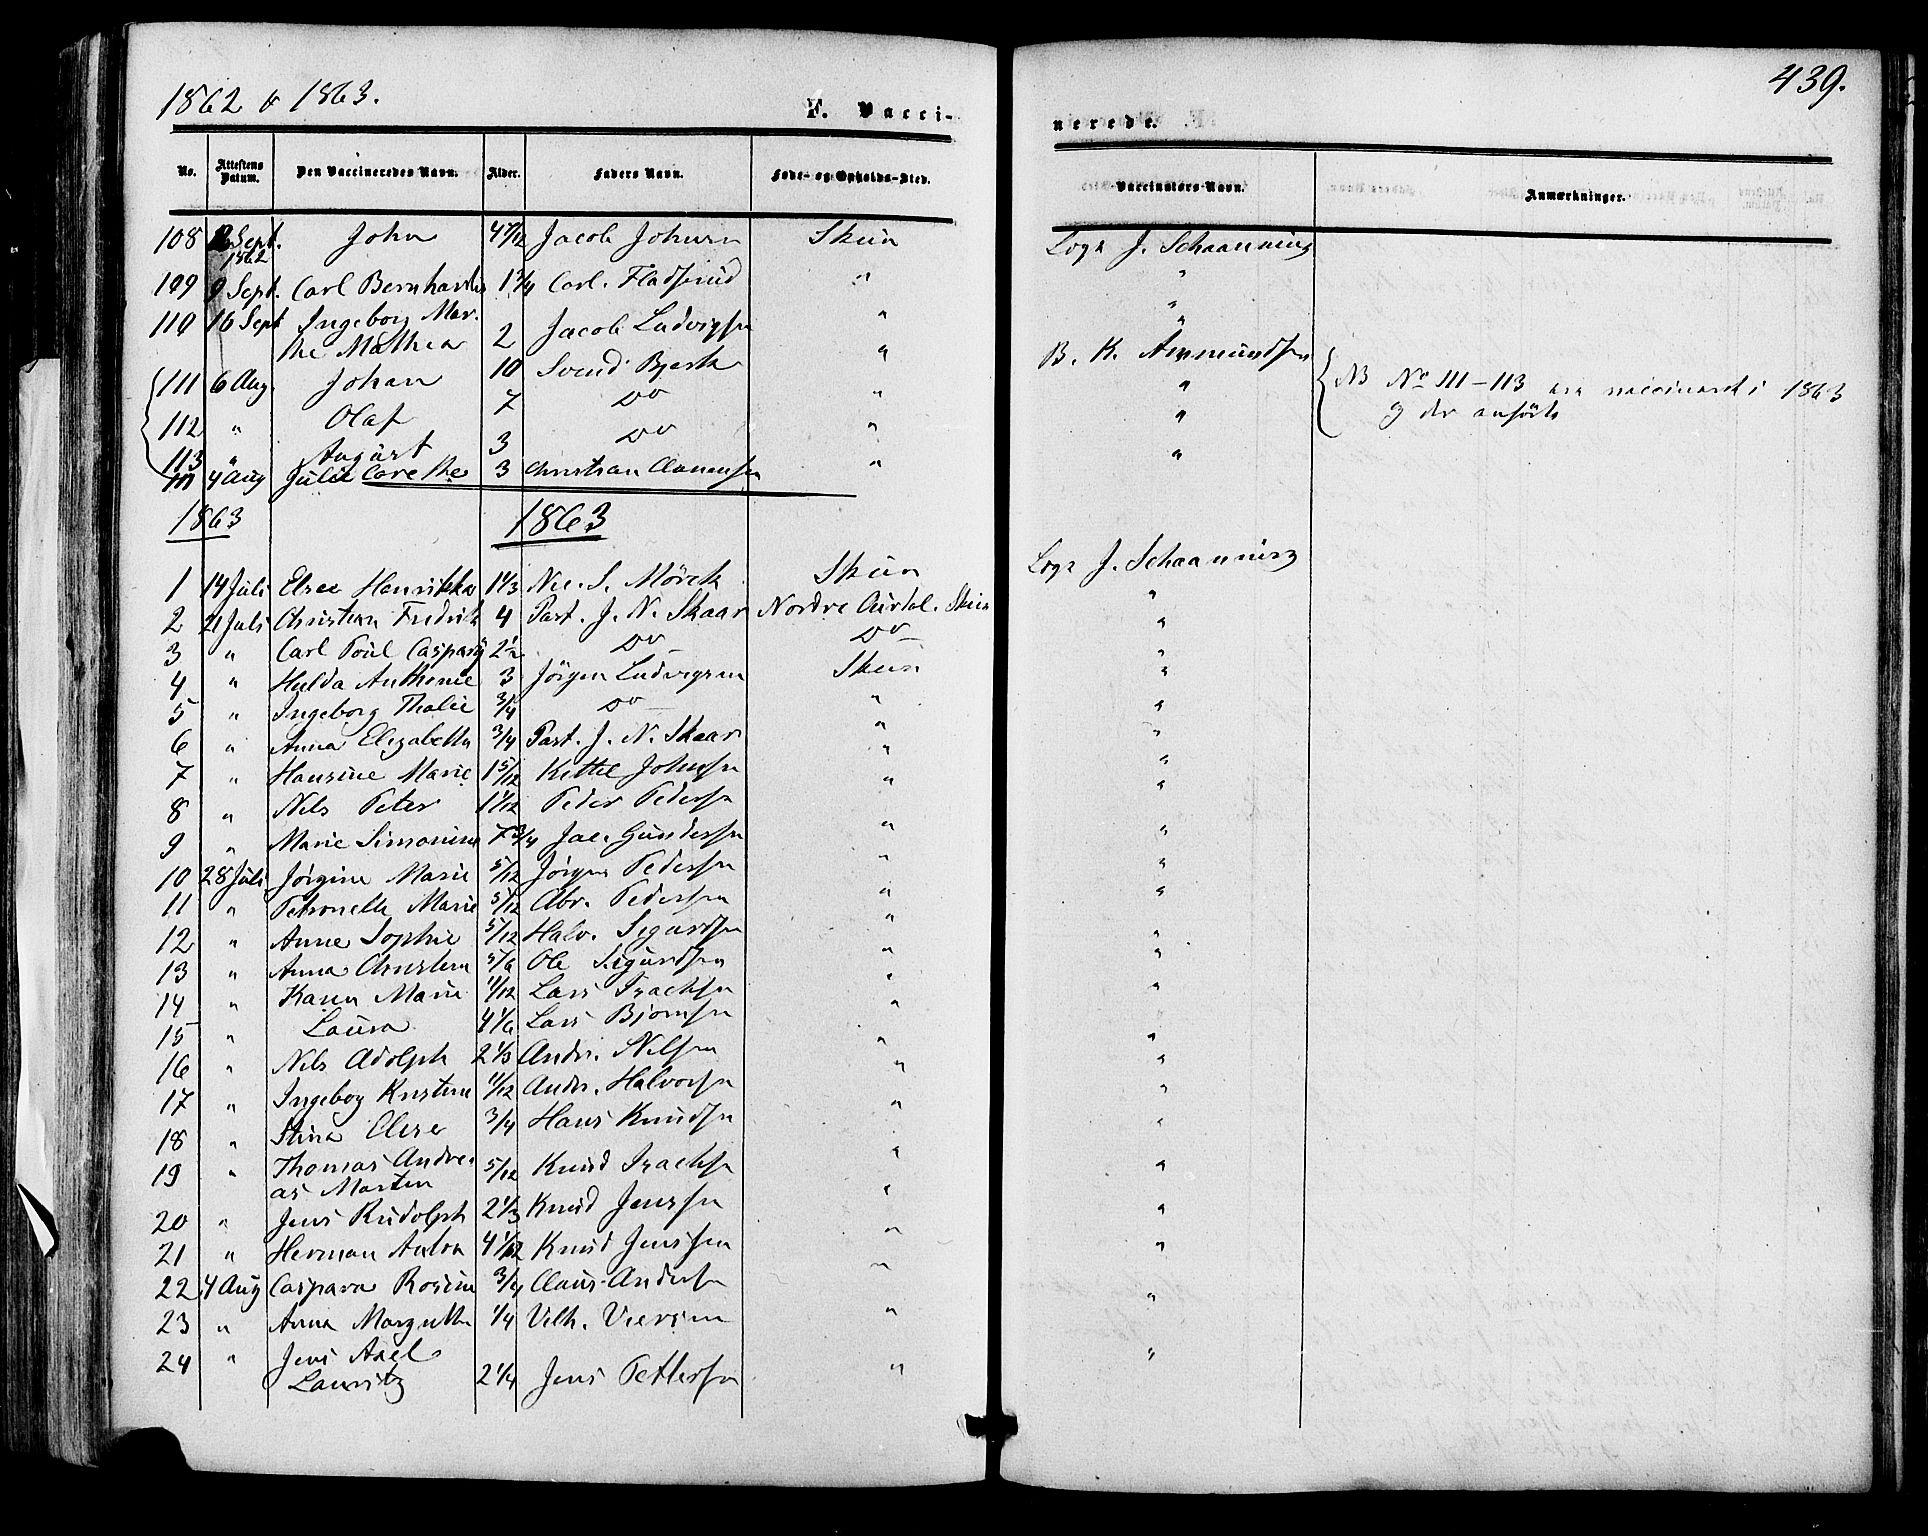 1862 & 1863.
F. Vacci-
nerede.
439.
No. Attestens Datum. Den Vaccineredes Navn. Alder. Faders Navn. Føde- og Opholds-Sted. Vaccinators Navn. Anmærkninger.
108 Sept. 1862 John 4 7/12 Jacob Johnsen Skien Lege J. Schaanning
109 9 Sept. Carl Bernhard 1 3/4 Carl. Fladsrud " "
110 16 Sept Ingeborg Mar-
the Mathea 2 Jacob Ludvigsen " "
111 6 Aug. Johan 10 Svend Bjerk " B. K. Anmundsen
112 " Olaf 7 Do " " NB No 111-113 ere vaccineret i 1863
113 " August 3 Do " " og der anført
4 Aug Julie Carethe 3 Christian Clausensen " "
1863 1863
1 14 Juli Elsee Henrikka 1 1/3 Nic. S. Mörch Skien Lege J. Schaanning
2 21 Juli Christian Fredrik 4 Past. J. N. Skaar Nordre Aurdal. Skien "
3 " Carl Poul Caspary 2 1/2 Do Do "
4 " Hulda Anthonie 3 Jörgen Ludvigsen Skien "
5 " Ingeborg Thalie 3/4 Do " "
6 " Anna Elizabetha 3/4 Past. J. N. Skaar " "
7 " Hansine Marie 1 5/12 Kittil Johnsen " "
8 " Nils Peter 1 1/12 Peder Pedersen " "
9 " Marie Simonine 7 3/4 Jac. Gundersen " "
10 28 Juli Jörgine Marie 5/12 Jörgen Pedersen " "
11 " Petronelle Marie 5/12 Abr. Pedersen " "
12 " Anne Sophie 5/12 Halv. Sigurdsen " "
13 " Anna Christen 5/6 Ole Sigurdsen " "
14 " Karen Marie 11/12 Lars Isachsen " "
15 " Laura 4 1/6 Lars Bjornsen " "
16 " Nils Adolph 2 1/3 Andr. Nilsen " "
17 " Ingeborg Kristine 11/12 Andr. Halvorsen " "
18 " Stina Elise 3/4 Hans Knudsen " "
19 " Thomas Andre-
as Martin 5/12 Knud Isachsen " "
20 " Jens Rudolph 2 1/3 Knud Jenssen " "
21 " Herman Anton 4 1/12 Knud Jenssen " "
22 4 Aug Caspara Rosine 3/4 Claus Andersen " "
23 " Anna Margrethe 1/4 Vilh. Viersen " "
24 " Jens Axel
Lauritz 2 1/4 Jens Pettersen " "